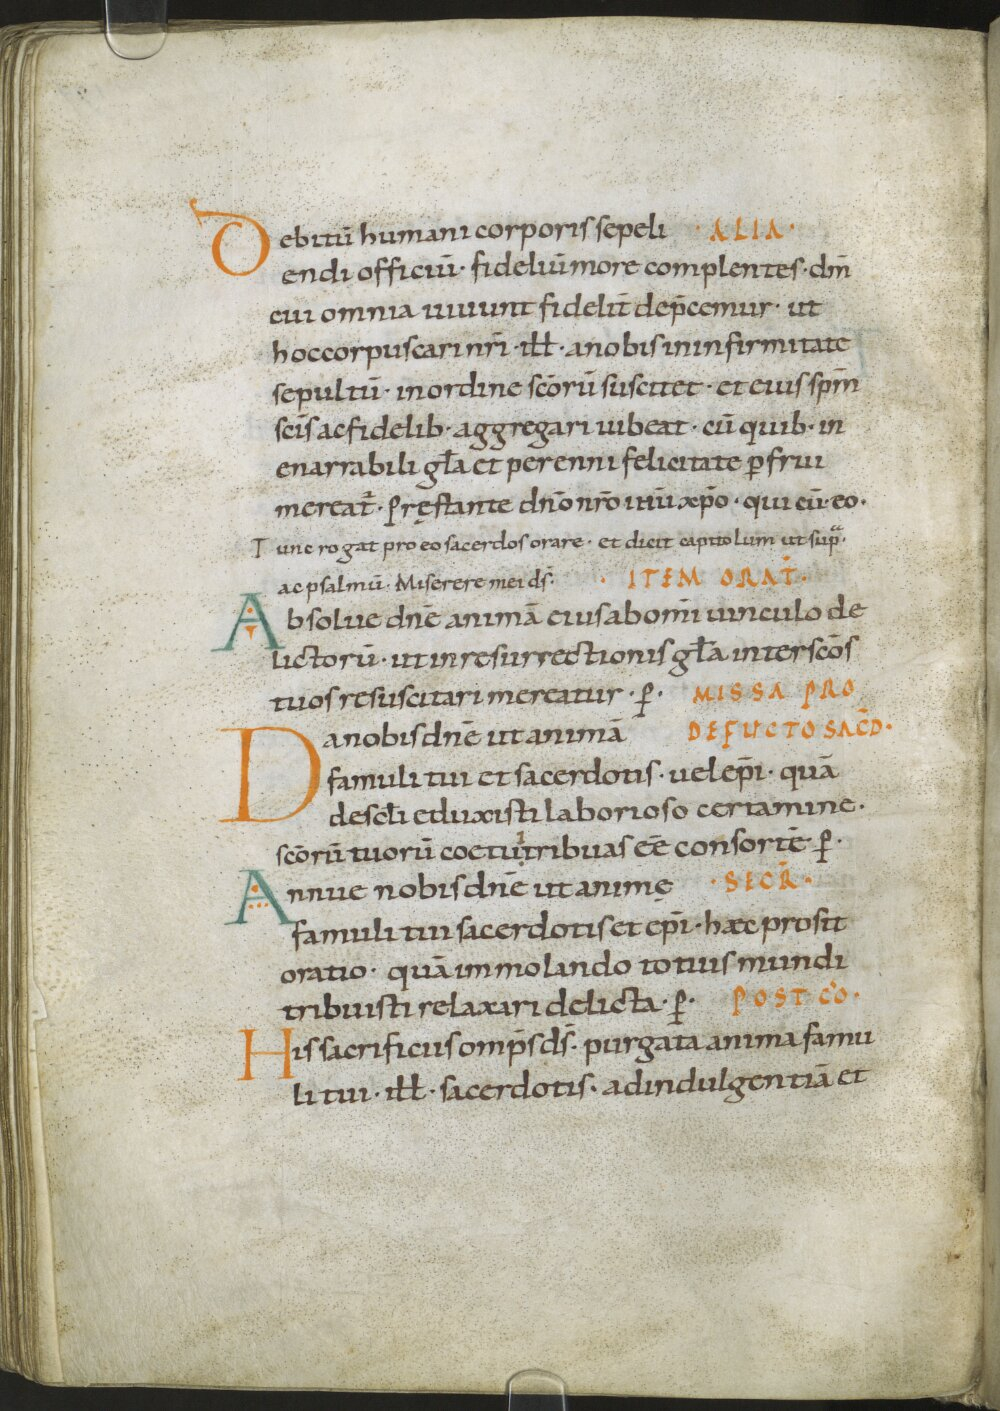 Debitū humani corporis sepeli · ALIA ·
endi officiū · fideliū more complentes · dm̄
cui omnia uiuunt fidelit̄ dep̄cemur · ut
hoc corpus cari nr̄i · ill̄ · a nobis in infirmitate
sepultū · in ordine sc̄orū suscitet · et eius sp̄m
sc̄is ac fidelib · aggregari iubeat · cū quib · in
enarrabili gl̄a et perenni felicitate p̱frui
mereat̄ · Pręstante dn̄o nr̄o ihū xp̄o · qui cū eo ·
Tunc rogat pro eo sacerdos orare · et dicit capitolum ut sup̱ᵃ ·
ac psalmū · Miserere mei ds̄ · · ITEM ORAT̄ ·
Absolue dn̄e animā eius ab om̄i uinculo de
lictorū · ut in resurrectionis gl̄a inter sc̄os
tuos resuscitari mereatur · p̱ · MISSA PRO
Da nobis dn̄e ut animā DEFUCTO SAC̄D ·
famuli tui et sacerdotis · uel ep̄i · quā
de sc̄li eduxisti laborioso certamine ·
sc̄orū tuorū coetui tribuas eē consortē p̱ ·
Annue nobis dn̄e ut animę · SECR̄ ·
famuli tui sacerdotis et ep̄i · hæc prosit
oratio · quā immolando totius mundi
tribuisti relaxari delicta · p̱ · POST CŌ ·
His sacrificiis omp̄s ds̄ · purgata anima famu
li tui · ill̄ · sacerdotis · ad indulgentiā et